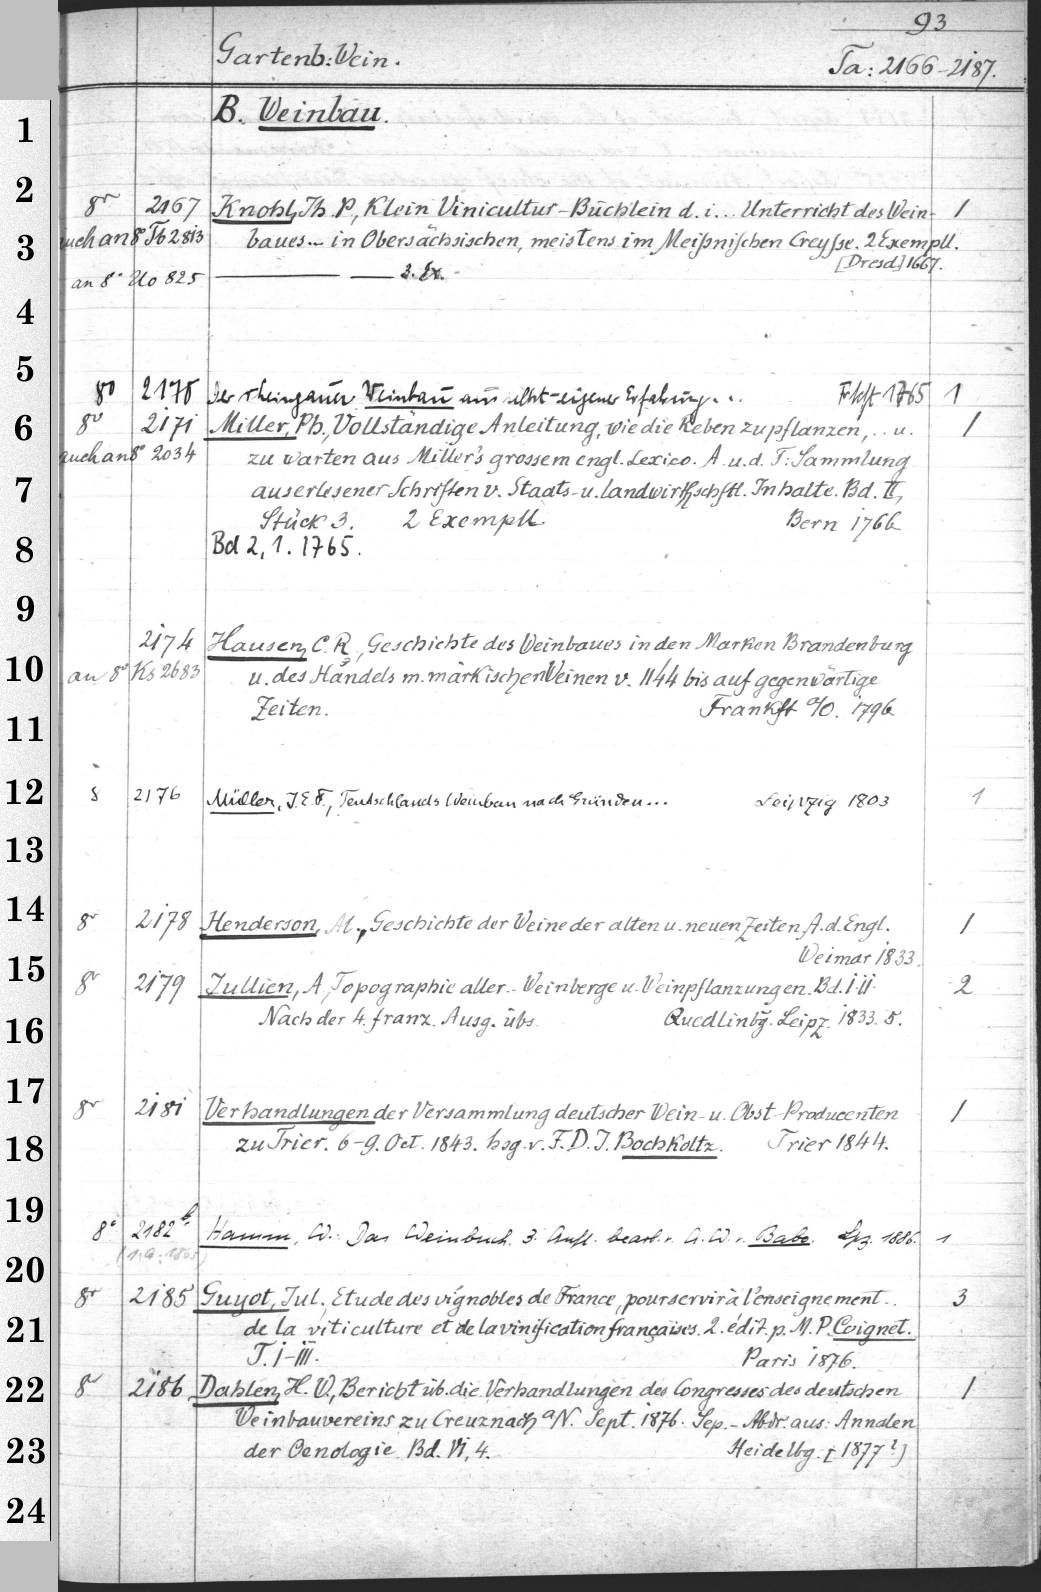 93
Gartenb: Wein.
Ta: 2166-2187.
1
B. Weinbau.
2
8º 2167 Knohl, Th. P., Klein Vinicultur-Büchlein d. i... Unterricht des Wein- 1
3
auch an 8º Tb 2813 baues... in Obersächsischen, meistens im Meißnischen Creysse. 2 Exempll.
[Dresd.] 1667.
an 8º Uo 825 3. Ex.
4
5
8º 2170 Der rheingauer Weinbau aus selbst-eigener Erfahrung... Fkft 1765 1
6
8º 2171 Miller, Ph., Vollständige Anleitung, wie die Reben zu pflanzen, .. u. 1
auch an 8º 2034 zu warten aus Miller's grossem engl. Lexico. A. u. d. T: Sammlung
7
auserlesener Schriften v. Staats- u. landwirthschftl. Inhalte. Bd. II,
Stück 3. 2 Exempll. Bern 1766
8
Bd 2, 1. 1765.
9
2174 Hausen, C. R., Geschichte des Weinbaues in den Marken Brandenburg
10
an 8º Ks 2683 u. des Handels m. märkischen Weinen v. 1144 bis auf gegenwärtige
11
Zeiten. Frankft a/O. 1796
12
8 2176 Müller, J. E. F., Teutschlands Weinbau nach Gründen... Leipzig 1803 1
13
14
8º 2178 Henderson, Al., Geschichte der Weine der alten u. neuen Zeiten, A. d. Engl. 1
Weimar 1833.
15
8º 2179 Jullien, A, Topographie aller.. Weinberge u. Weinpflanzungen. Bd. i.ii. 2
16
Nach der 4. franz. Ausg. übs. Quedlinbg. Leipz. 1833. 5.
17
8º 2181 Verhandlungen der Versammlung deutscher Wein- u. Obst-Producenten 1
18
zu Trier. 6-9. Oct. 1843. hsg. v. F. D. J. Bochkoltz. Trier 1844.
19
8º 2182b Hamm, W.: Das Weinbuch. 3. Aufl. bearb. v. A. W. v. Babo. Lpz. 1886. 1
(1. A: 1865)
20
8º 2185 Guyot, Jul., Etude des vignobles de France, pour servir à l'enseignement.. 3
21
de la viticulture et de la vinification françaises. 2. édit. p. M. P. Coignet.
T. i-iii. Paris 1876.
22
8º 2186 Dahlen, H. W., Bericht üb. die Verhandlungen des Congresses des deutschen 1
Weinbauvereins zu Creuznach a/N. Sept. 1876. Sep.-Abdr. aus: Annalen
23
der Oenologie Bd. Vi, 4. Heidelbg. [1877?]
24